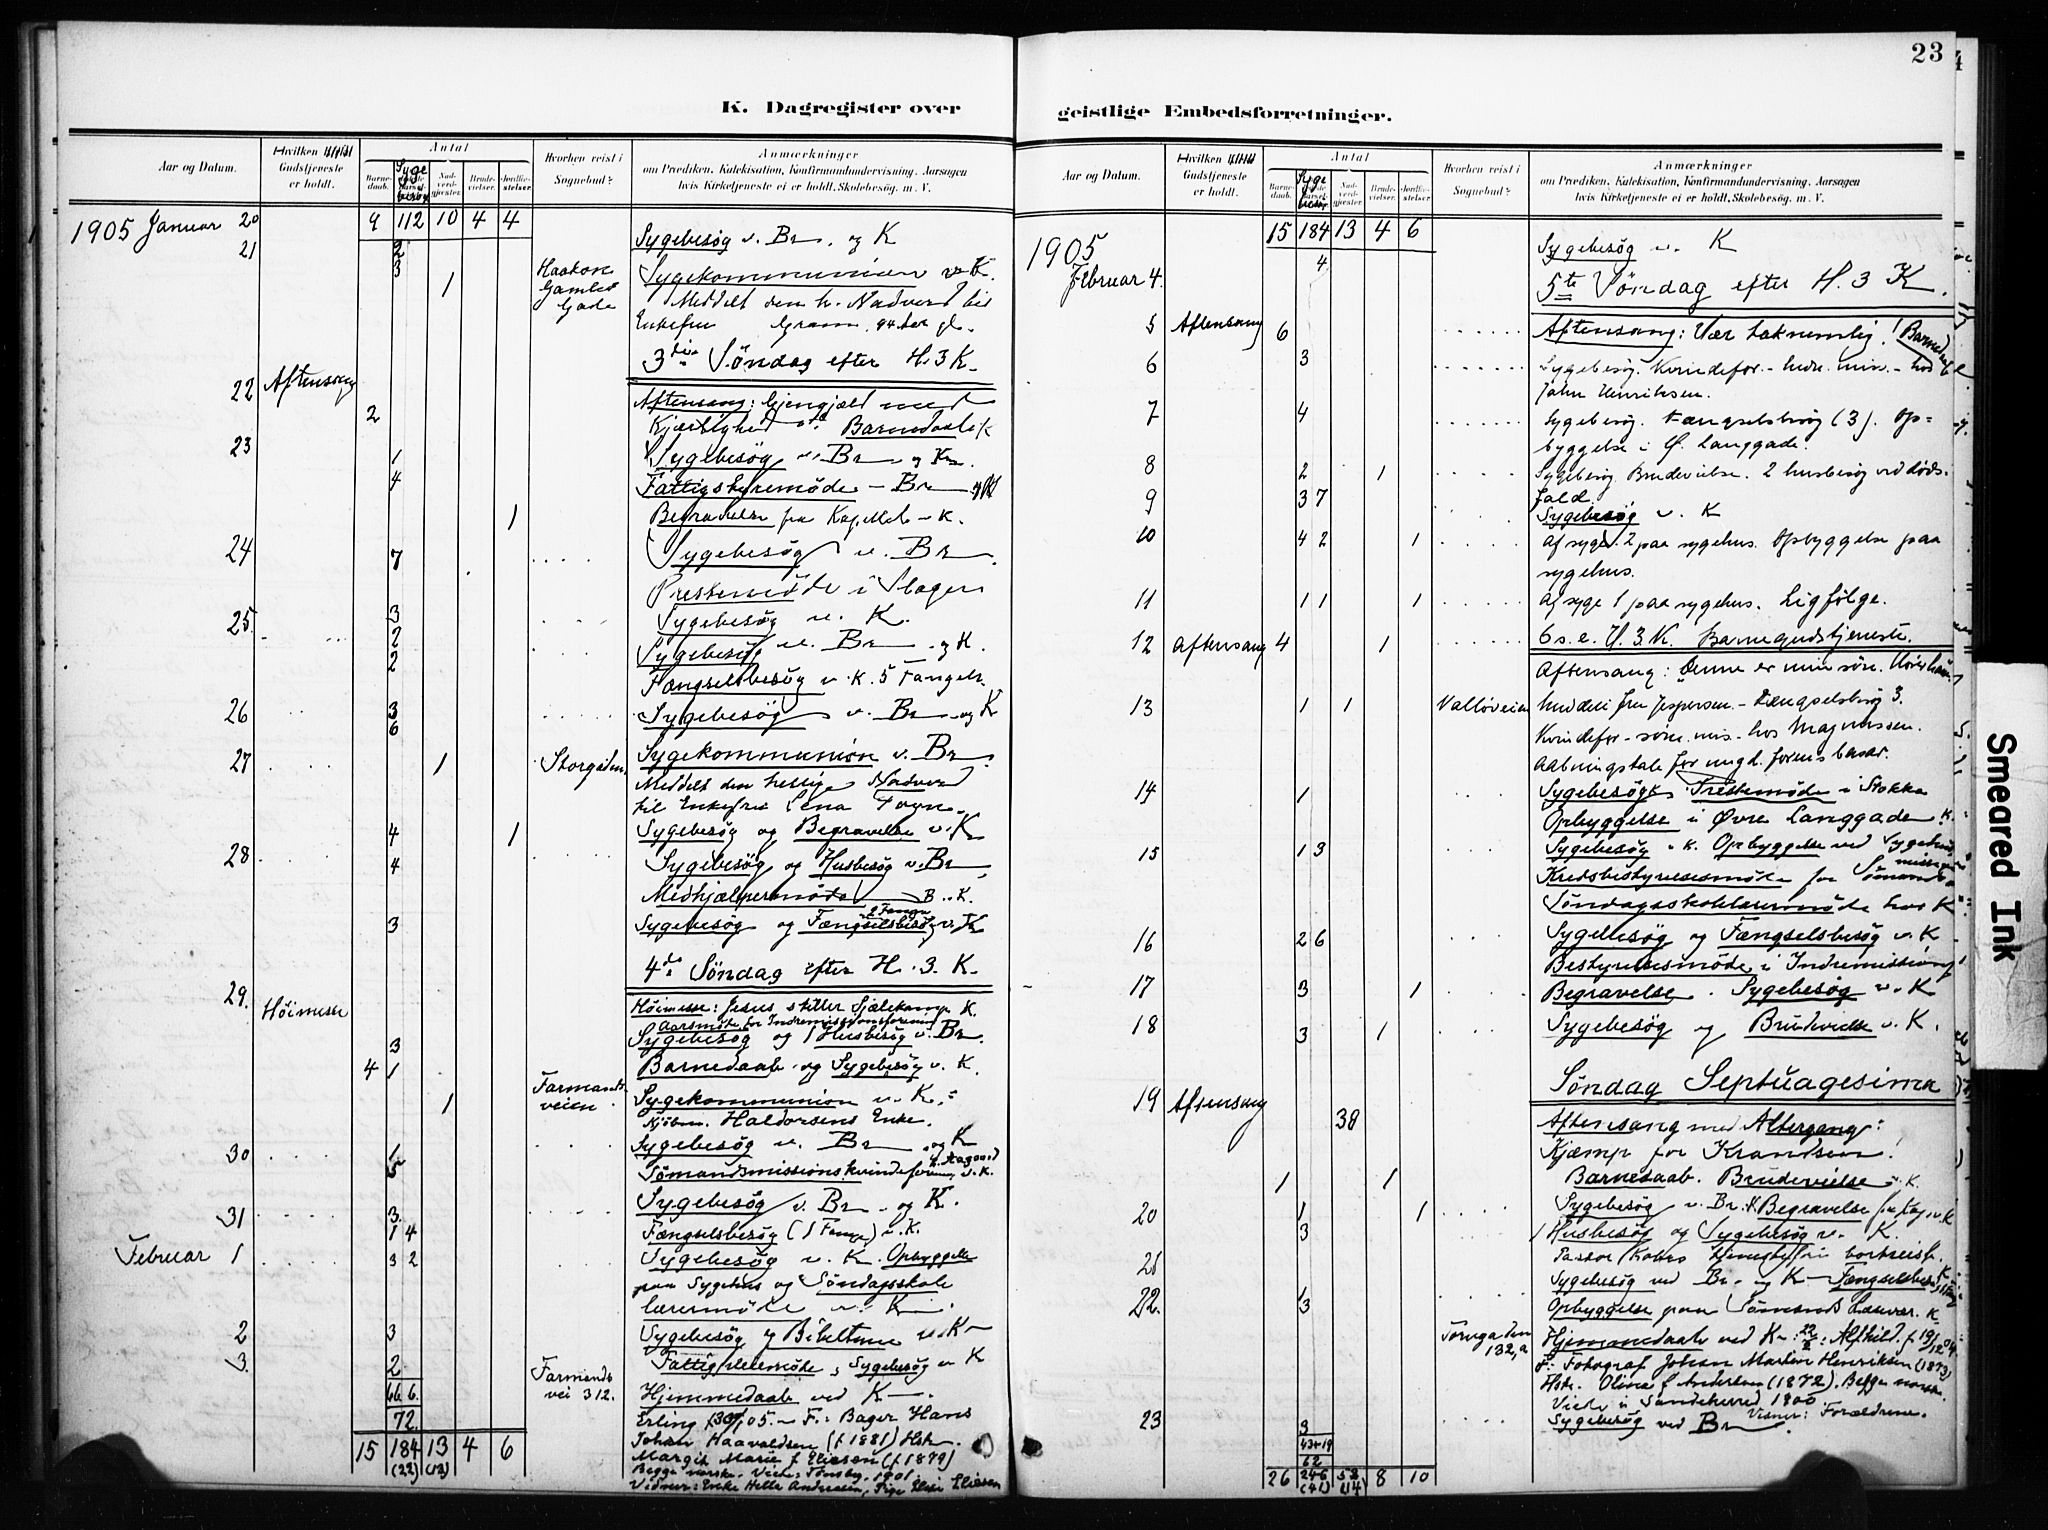 23
K. Dagregister over
geistlige Embedsforretninger.
Aar og Datum.
Hvilken
Gudstjeneste
er holdt.
Antal
Barne-
daab.
Syge
besøg
Nad-
verd-
gjester.
Brude-
vielser.
Jordfæ-
stelser
Hvorhen reist i
Sognebud?
Anmærkninger
om Prædiken, Katekisation, Konfirmandundervisning, Aarsagen
hvis Kirketjeneste ei er holdt, Skolebesøg. m. V.
1905 Januar 20 9 112 10 4 4
Sygebesøg v. Br. og K
21 2
3 1 Haakon
Gamles
Gade
Sygekommunion v. K.
Meddelt den h. Nadverd til
Enkefru Gram, 94 aar gl.
3die Søndag efter H. 3 K.
22 Aftensang 2
Aftensang: Gjengjæld med
Kjærlighed Barnedaab K
23 1 Sygebesøg v. Br og K.
4 Fattigstyremøde - Br og K
1 Begravelse fra Kapellet v K.
24 7 Sygebesøg v. Br
Prestemøde i Slagen
3 Sygebesøg v. K.
25. 2 Sygebesøg v. Br og K.
2 Fængselsbesøg v. K. 5 Fanger.
26 3 Sygebesøg v. Br og K
6
27 1 Storgaden Sygekommunion v. Br
Meddelt den hellige Nadverd
til Enkefru Lena Foyn.
4 1 Sygebesøg og Begravelse v. K
28 4 Sygebesøg og Husbesøg v. Br
Medhjælpermøde B. K.
3 Sygebesøg og Fængselsbesøg v. K
2 Fange
4de Søndag efter H. 3. K.
29. Høimesse
Høimesse: Jesus stiller Sjælekamp K.
Aarsmøte for Indremissionsforening
3 Sygebesøg og 1 Husbesøg v. Br.
4 1 Barnedaab og Sygebesøg v. K.
1 Farmands
veien Sygekommunion v. K.
Kjøbm. Haldorsens Enke.
30 1 Sygebesøg v. Br og K
5 Sømandsmissionskvindeforening v. K.
Sygebesøg v. Br. og K.
31 3
1 4 Fængselsbesøg (1 Fange) v. K.
Februar 1 3 2 Sygebesøg v. K. Opbyggelse
paa Sygehus og Søndagsskole
lærermøte v. K.
2 3 Sygebesøg og Bibeltime v. K
3. 2 Fattig møde, Sygebesøg v K
66 6. Farmands
vei 312. Hjemmedaab ved K
72. Erling 05. F.: Bager Hans
Johan Haavaldsen (f 1881) Hstr.
15 184 13 4 6
(22) (12)
Margit Marie f Eliasen (f 1879)
Begge norske. Viet i Tønsberg 1901.
Vidner: Enke Helle Andresen, Pige Elise Eliasen
Aar og Datum.
Hvilken
Gudstjeneste
er holdt.
Antal
Barne-
daab.
Syge
besøg
Nad-
verd-
gjester.
Brude-
vielser.
Jordfæ-
stelser
Hvorhen reist i
Sognebud?
Anmærkninger
om Prædiken, Katekisation, Konfirmandundervisning, Aarsagen
hvis Kirketjeneste ei er holdt, Skolebesøg. m. V.
15 184 13 4 6
1905
Februar 4. 4 Sygebesøg v. K
5te Søndag efter H. 3 K.
5 Aftensang 6 Aftensang: Vær taknemlig! Barnedaab
6 3 Sygebesøg. Kvindefor. - indre mis. - hos
John Henriksen.
7 4 Sygebesøg. Fængselsbesøg (3). Op-
byggelse i Ø. Langgade.
8 2 1 Sygebesøg. Brudevielse. 2 husbesøg ved døds-
fald.
9 3 7 Sygebesøg v. K
10 4 2 1 Af syge 2 paa sygehus. Opbyggelse paa
sygehus.
11 1 1 1 Af syge 1 paa sygehus. Ligfølge.
12 Aftensang 4 1 6 s. e. H. 3 K. Barnegudstjeneste.
Aftensang: Denne er min søn.
13 1 1 Valløveien Meddelt fru Jespersen. - Fængselsbesøg 3.
Kvindefor. - søm. mis. - hos Magnussen.
Aabningstale for ungd. forens basar.
14 1 Sygebesøg K Prestemøde i Stokke
Opbyggelse i Øvre Langgade K.
15 1 3 Sygebesøg v K. Opbyggelse ved Sygehus
Kredsbestyrelsesmøte for Sømands
missionen
Søndagsskolelærermøde hos K
16 2 6 Sygebesøg og Fængselsbesøg v. K
Bestyrelsesmøde i Indremission
17 3 1 Begravelse. Sygebesøg v. K
18 3 1 Sygebesøg og Brudevielse v. K.
Søndag Septuagesima
19 Aftensang 38 Aftensang med Altergang:
Kjæmp for Krandsen!
1 1 Barnedaab. Brudevielse v. K
20 1 1 Sygebesøg v. Br. K Begravelse fra Kap. v. K
3 1 Husbesøg og Sygebesøg v. K.
21 Pastor bortreist.
Sygebesøg ved Br. og K - Fængselsbesøg
22. 1
3 Opbyggelse paa Sømands Læsevær. K
Tomgaden
132, a Hjemmedaab ved K: 22/2: Alfhild. f 19/12 04.
F.: Fotograf Johan Martin Henriksen (1873)
Hstr. Olina f Andersen (1872). Begge norske.
Viet i Sandeherred 1900.
Vidner: Forældrene.
23 3 Sygebesøg ved Br
43+19
62
26 246 52 8 10
(41) (14)
Smeared Ink